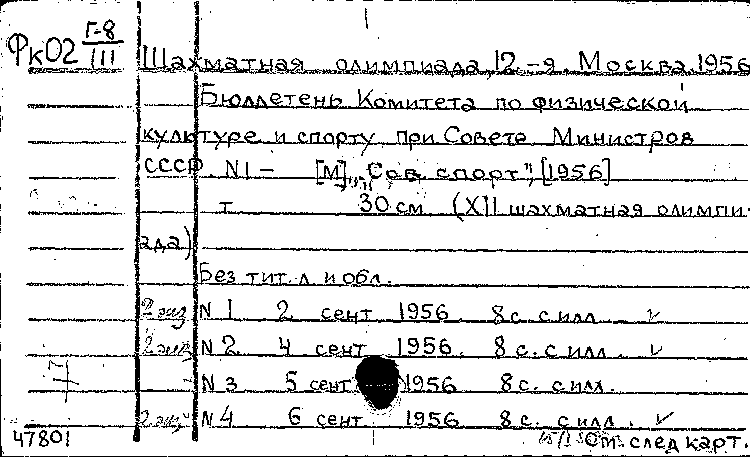 ФкО2 Г-8/III
Шахматная олимпиада, 12-я. Москва. 1956
Бюллетень Комитета по физической
культуре и спорту при Совете Министров
СССР. N1 - [М], "Сов. спорт", [1956]
т 30 см (XII шахматная олимпи-
ада)
Без тит. л. и обл.
2 экз N 1 2 сент 1956. 8 с. с илл. ✓
2 экз N 2 4 сент 1956. 8 с. с илл. ✓
- N 3 5 сент 1956 8 с. с илл.
2 экз N 4 6 сент 1956 8 с. с илл. ✓
47801 См. след карт.